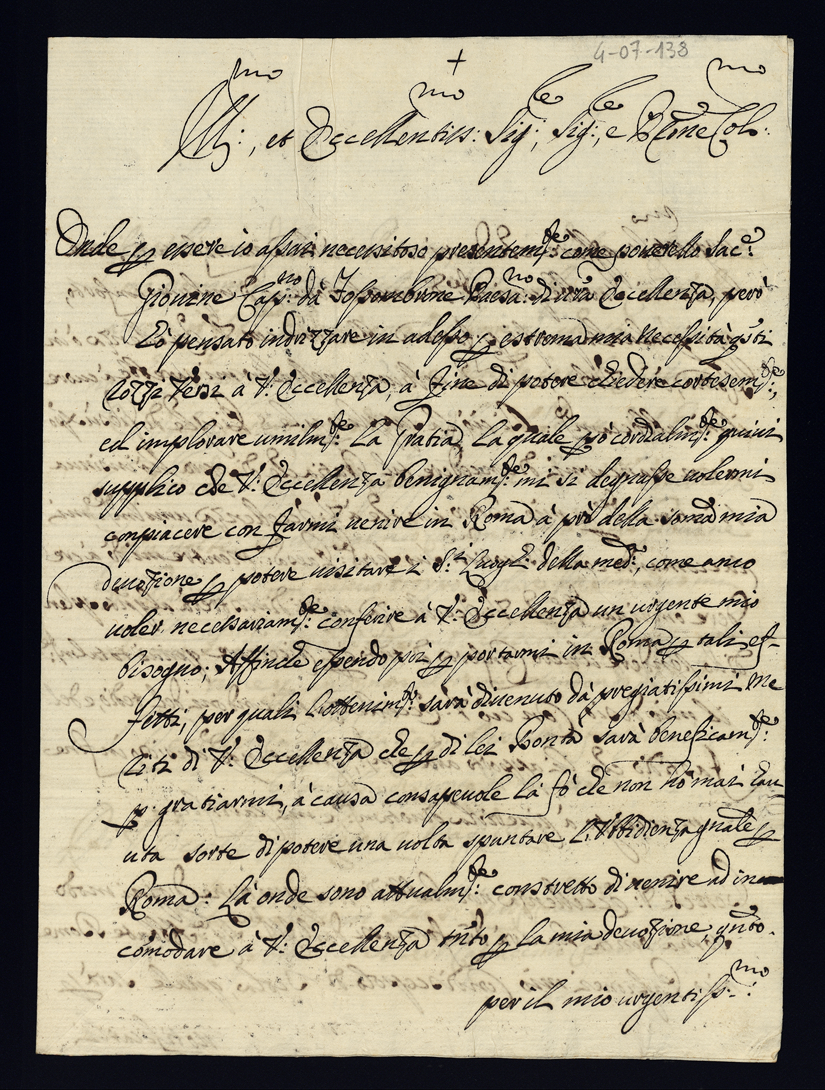 4-07-138
+
Ill:mo, et Eccellentiss:mo Sig:le, Sig:le, e Pne Col:mo
Onde p essere io assai necessitoso presentem:te come pouerello Sac:e
Giouine Cap:no da Fossombrone Paesa:no di vra Eccellenza, però
hò pensato indrizzare in adesso p estrema mia necessità qsti
rozzi versi a V: Eccellenza, à fine di potere chiedere cortesem:te,
ed implorare umilm:te la Gratia la quale p cordialm:te quiui
supplico che V: Eccellenza benignam:te mi si degnasse uolermi
conpiacere con farmi uenire in Roma à prò della soma mia
deuozione p potere uisitare i S:ti Luoghi della med:, come anco
uoler necessariam:te conferire à V: Eccellenza un urgente mio
bisogno; Affinche essendo poi p portarmi in Roma p tali ef-
fetti, per quali l'ottenim:to sarà diuenuto dà pregiatissimi me
riti di V: Eccellenza che p di lei Bontà sarà beneficam:te
p gratiarmi, à causa consapeuole la fò che non hò mai hau
uta sorte di potere una uolta spuntare l'Vbbidienza gnale p
Roma: Là onde sono attualm:te constretto di uenire ad in-
comodare à V: Eccellenza tnto p la mia deuozione qnto
per il mio urgentiss:mo